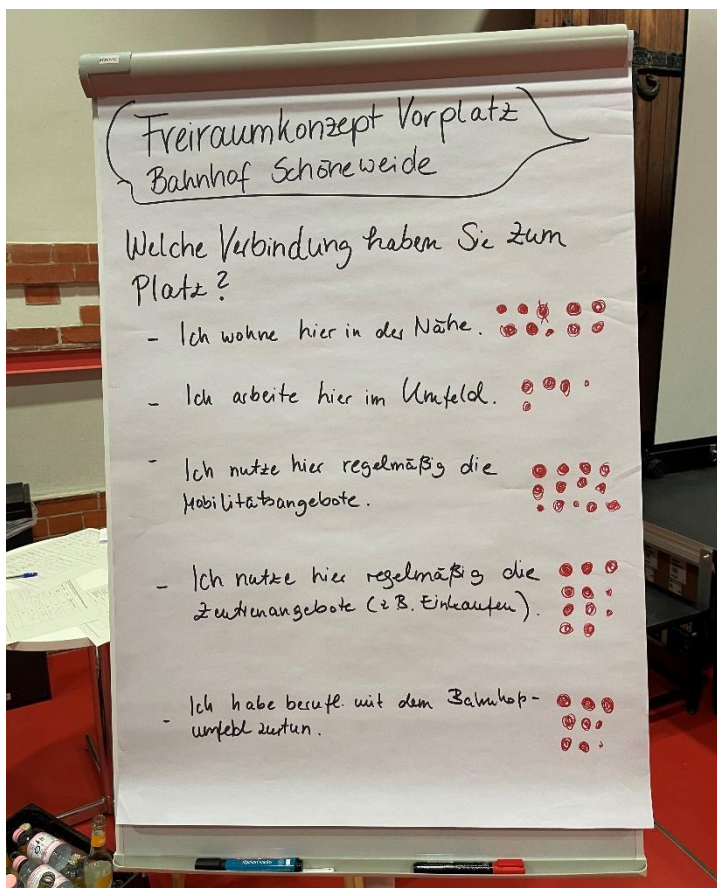 Freiraumkonzept Vorplatz
Bahnhof Schöneweide
Welche Verbindung haben Sie zum
Platz?
- Ich wohne hier in der Nähe.
- Ich arbeite hier im Umfeld.
- Ich nutze hier regelmäßig die
Mobilitätsangebote.
- Ich nutze hier regelmäßig die
Zentrenangebote (z.B. Einkaufen).
- Ich habe berufl. mit dem Bahnhof-
umfeld zutun.